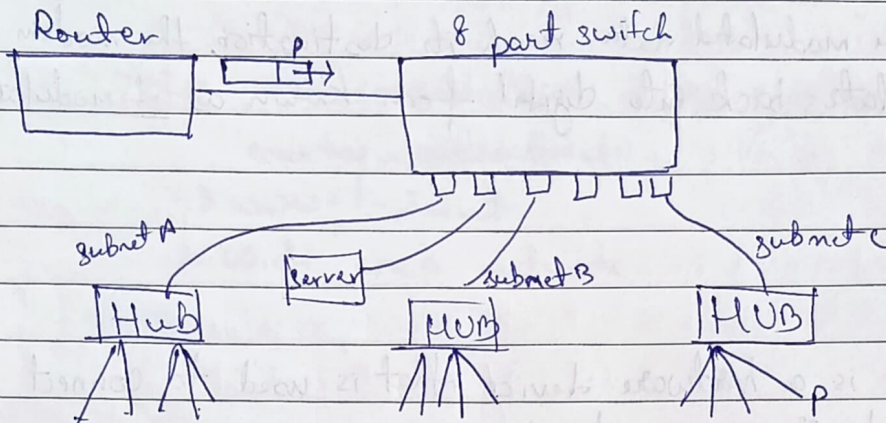 Router
P
8 part switch
subnet A
server
subnet B
subnet C
Hub
HUB
HUB
P